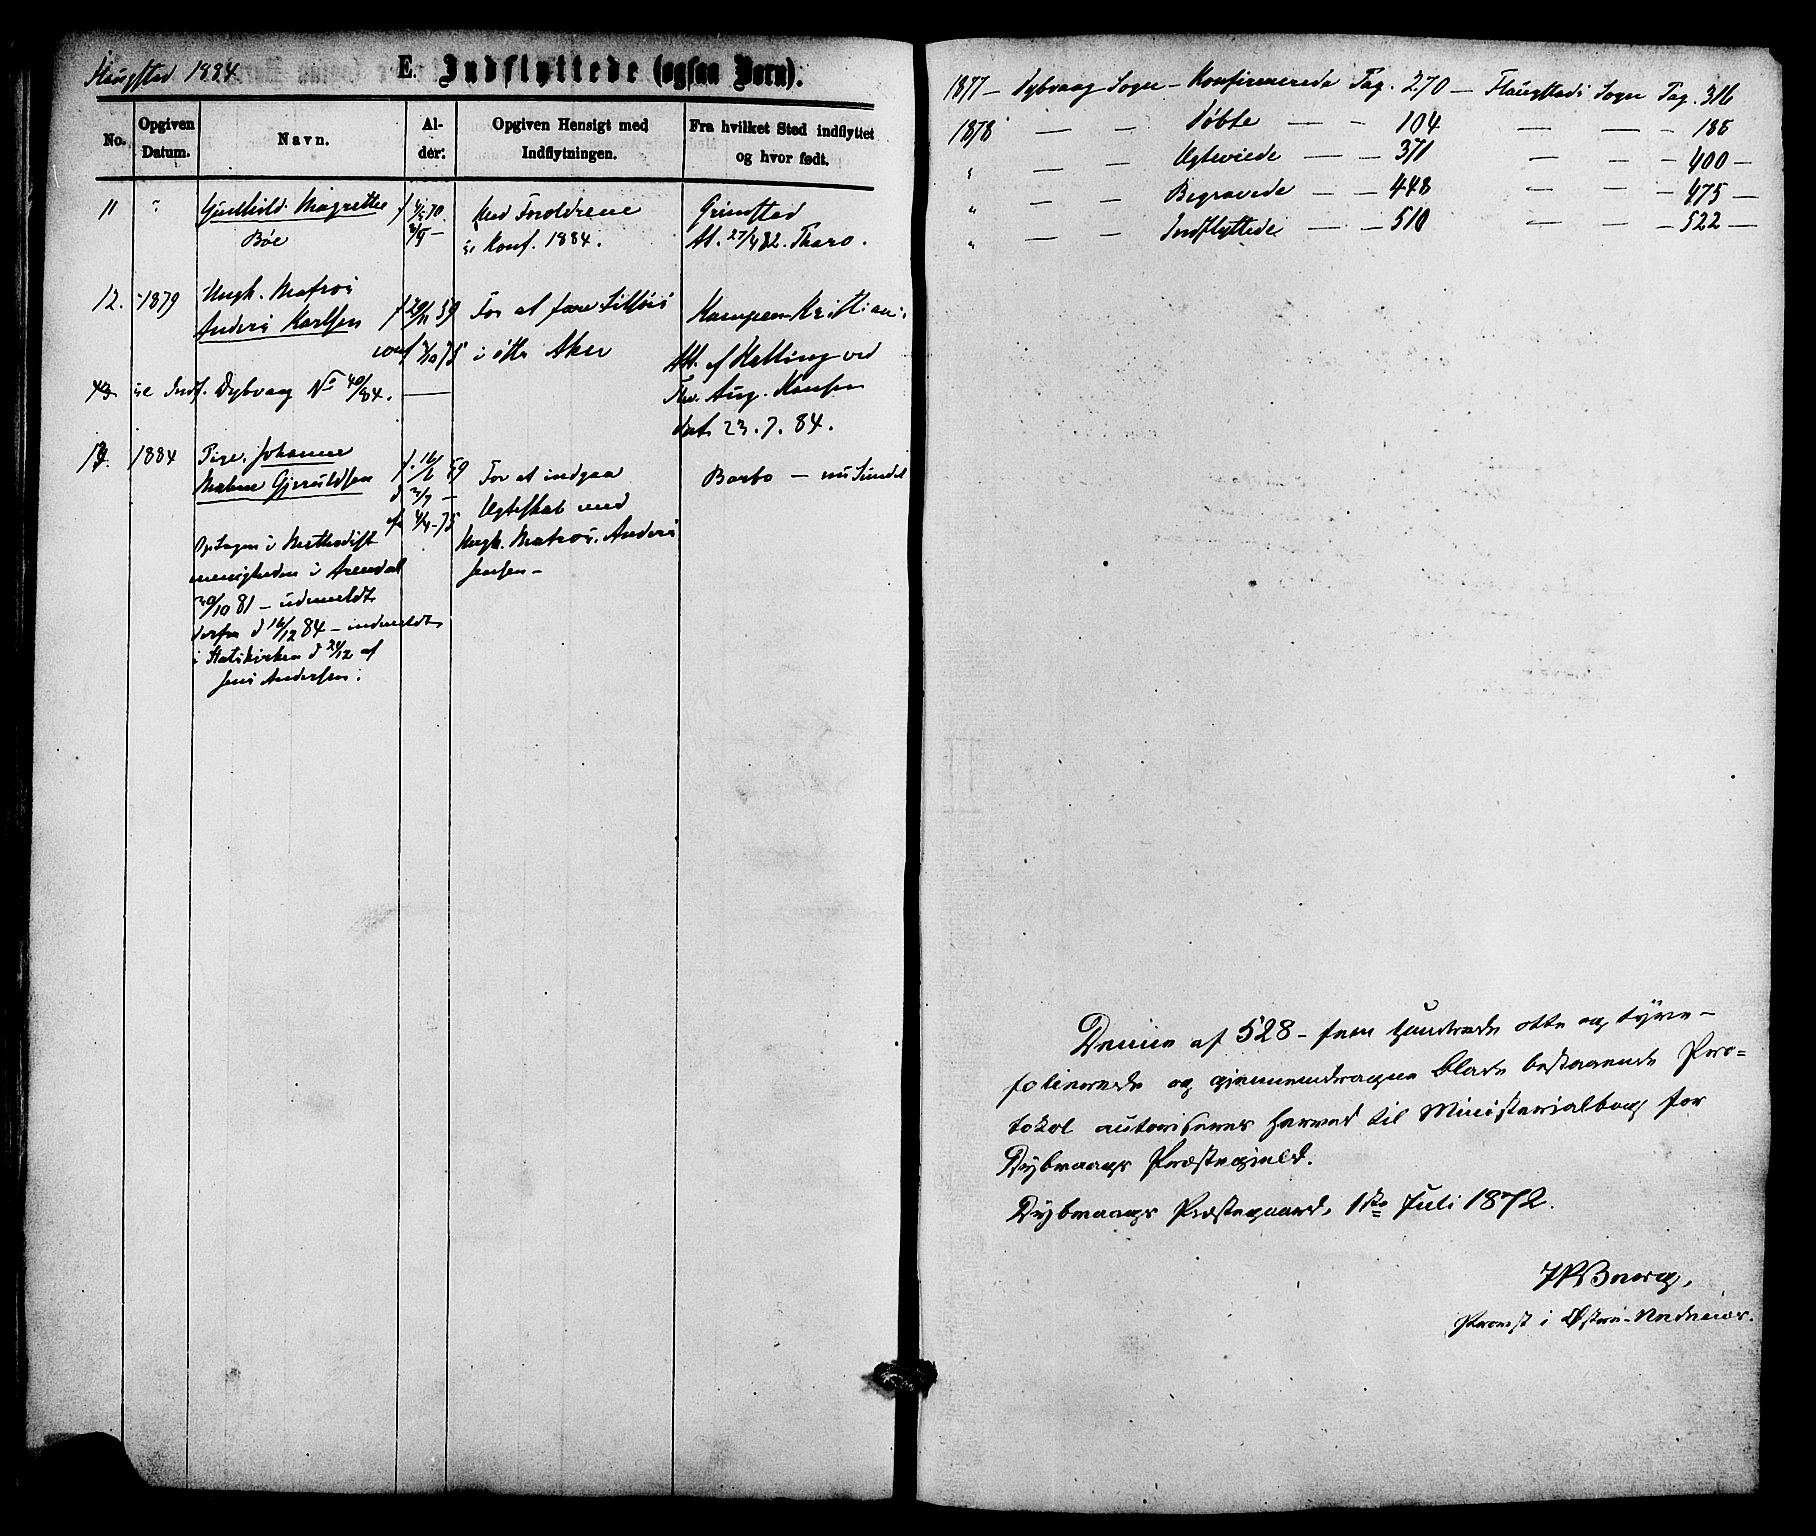 Flaugstad 1884
E. Indflyttede (ogsaa Børn).
No.
Opgiven
Datum.
Navn.
Al-
der:
Opgiven Hensigt med
Indflytningen.
Fra hvilket Sted indflyttet
og hvor født.
11
Gunhild Magrethe
Bøe
f 4/5 70.
Med Forældrene
se Konf. 1884.
Grimstad
At. 27/4 82. Tharo.
12. 1879
Ungk. Matros
Anders Karlsen
f 20/11 59
conf 3/10 75
For at fare tilsøis
i
Kampen Kristian.
Att. af Kalling ved
Aug. Hansen
dat. 23.7.84.
se Indf. Dybvaag No 40/84.
13. 1884
Pige. Johanne
Malene Gjeruldsen
f. 16/6 59
d 3/7 —
cf 4/4 - 75
For at indgaa
Ægteskab med
Ungk. Matros. Anders
Jensen —
Barbo — nu Sundal
Optagen i Methodist
menigheden i Arendal
30/10 81 — udmeldt
derfra d 16/12 84 — indmeldt
i Statskirken d 24/12 af
Jens Andersen.
1877 — Dybvaag Sogn — Konfirmerede Pag. 270 — Flaugstads Sogn Pag. 316
1878 — — Døbte — — 104 — — — 188
" — — Ægteviede — — 371 — — — 400 —
" — — Begravede — — 448 — — — 475 —
" — — Indflyttede — — 510 — — — 522 —
Denne af 528 — fem hundrede otte og tyve —
folierede og gjennemdragne blade bestaaende Pro=
tokol autoriseres herved til Ministerialbog for
Dybvaags Præstegjeld.
Dybvaags Præstegaard, 1ste Juli 1872.
Provst i Østre-Nedenæs.